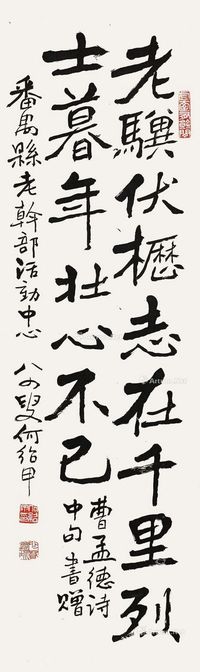 老驥伏櫪志在千里烈
士暮年壯心不已
曹孟德詩
中句書贈
番禺縣老幹部活動中心
八四叟何紹甲